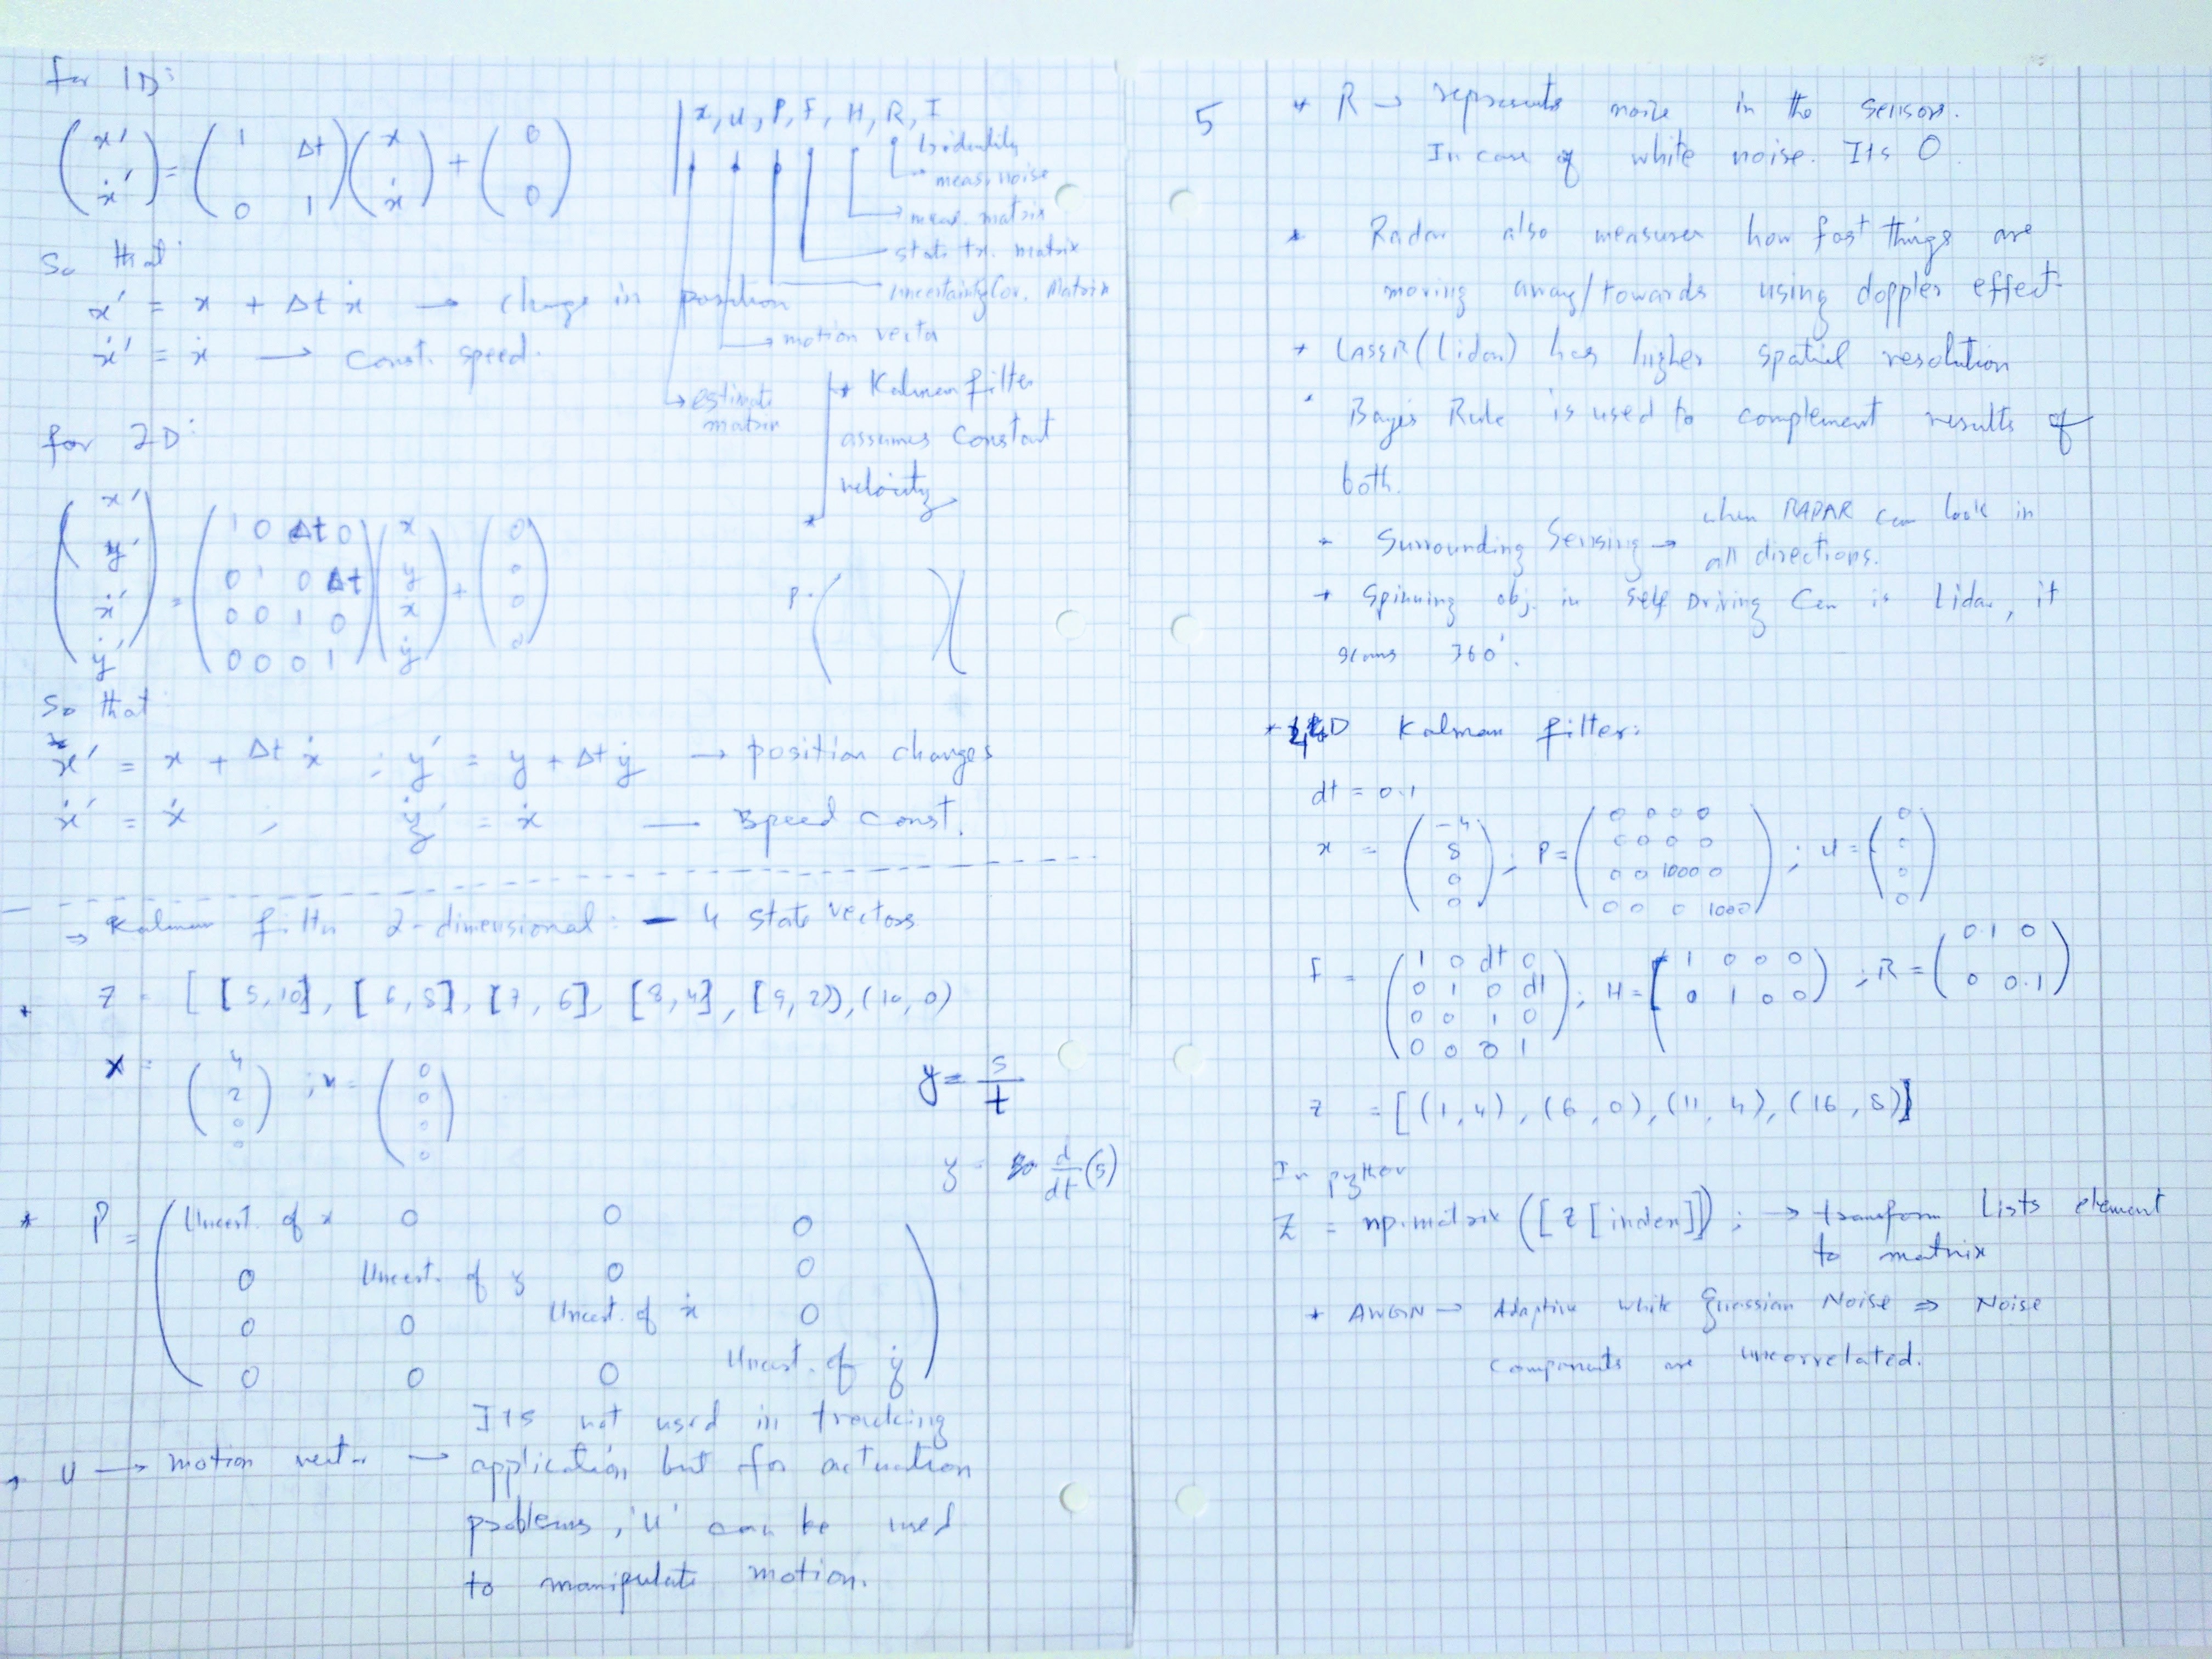 for 1D:
( x′ ẋ′ ) = ( 1 Δt 0 1 ) ( x ẋ ) + ( 0 0 )
So that
x′ = x + Δt ẋ → change in position
ẋ′ = ẋ → const. speed.
x, u, P, F, H, R, I
identity
meas. noise
meas. matrix
state tr. matrix
uncertainty Cov. Matrix
motion vector
estimate
matrix
* Kalman filter
assumes Constant
velocity
for 2D:
( x′ y′ ẋ′ ẏ′ ) = ( 1 0 Δt 0
0 1 0 Δt
0 0 1 0
0 0 0 1 ) ( x y ẋ ẏ ) + ( 0 0 0 0 )
P.
So that
x′ = x + Δt ẋ ; y′ = y + Δt ẏ → position changes
ẋ′ = ẋ , ẏ′ = ẋ — Speed const.
⇒ Kalman filter 2-dimensional: – 4 state vectors
* Z = [ [5,10], [6,8], [7,6], [8,4], [9,2]), (10,0)
X = ( 4 2 0 0 ) ; u = ( 0 0 0 0 )
y = s/t
y = d/dt (s)
* P = ( Uncert. of x 0 0 0
0 Uncert. of y 0 0
0 0 Uncert. of ẋ 0
0 0 0 Uncert. of ẏ )
Its not used in tracking
* U → motion vector → application but for actuation
problems, 'u' can be used
to manipulate motion.
5
* R → represents noise in the sensors.
In case of white noise. Its 0.
* Radar also measures how fast things are
moving away/towards using doppler effect
* LASER (lidar) has higher spatial resolution
* Bayes Rule is used to complement results of
both.
* Surrounding Sensing → when RADAR can look in
all directions.
* Spinning obj. in Self Driving Car is Lidar, it
scans 360°.
* 4D Kalman filter:
dt = 0.1
x = ( -4 8 0 0 ) ; P = ( 0 0 0 0
0 0 0 0
0 0 1000 0
0 0 0 1000 ) ; u = ( 0 0 0 0 )
F = ( 1 0 dt 0
0 1 0 dt
0 0 1 0
0 0 0 1 ) ; H = ( 1 0 0 0
0 1 0 0 ) ; R = ( 0.1 0
0 0.1 )
Z = [(1,4), (6,0), (11,4), (16,8)]
In python
Z = np.matrix ([Z[index]]) ; → transform Lists element
to matrix
* AWGN → Adaptive white Guassian Noise ⇒ Noise
components are uncorrelated.